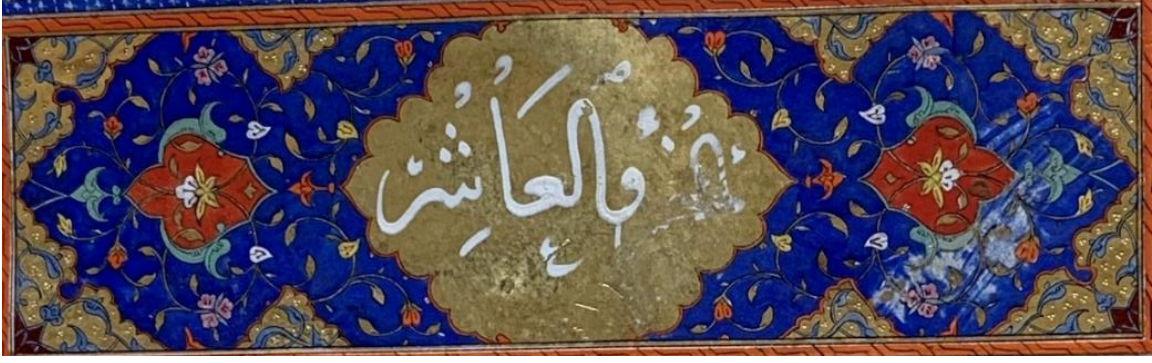 الجُزؤُ العَاشِرُ